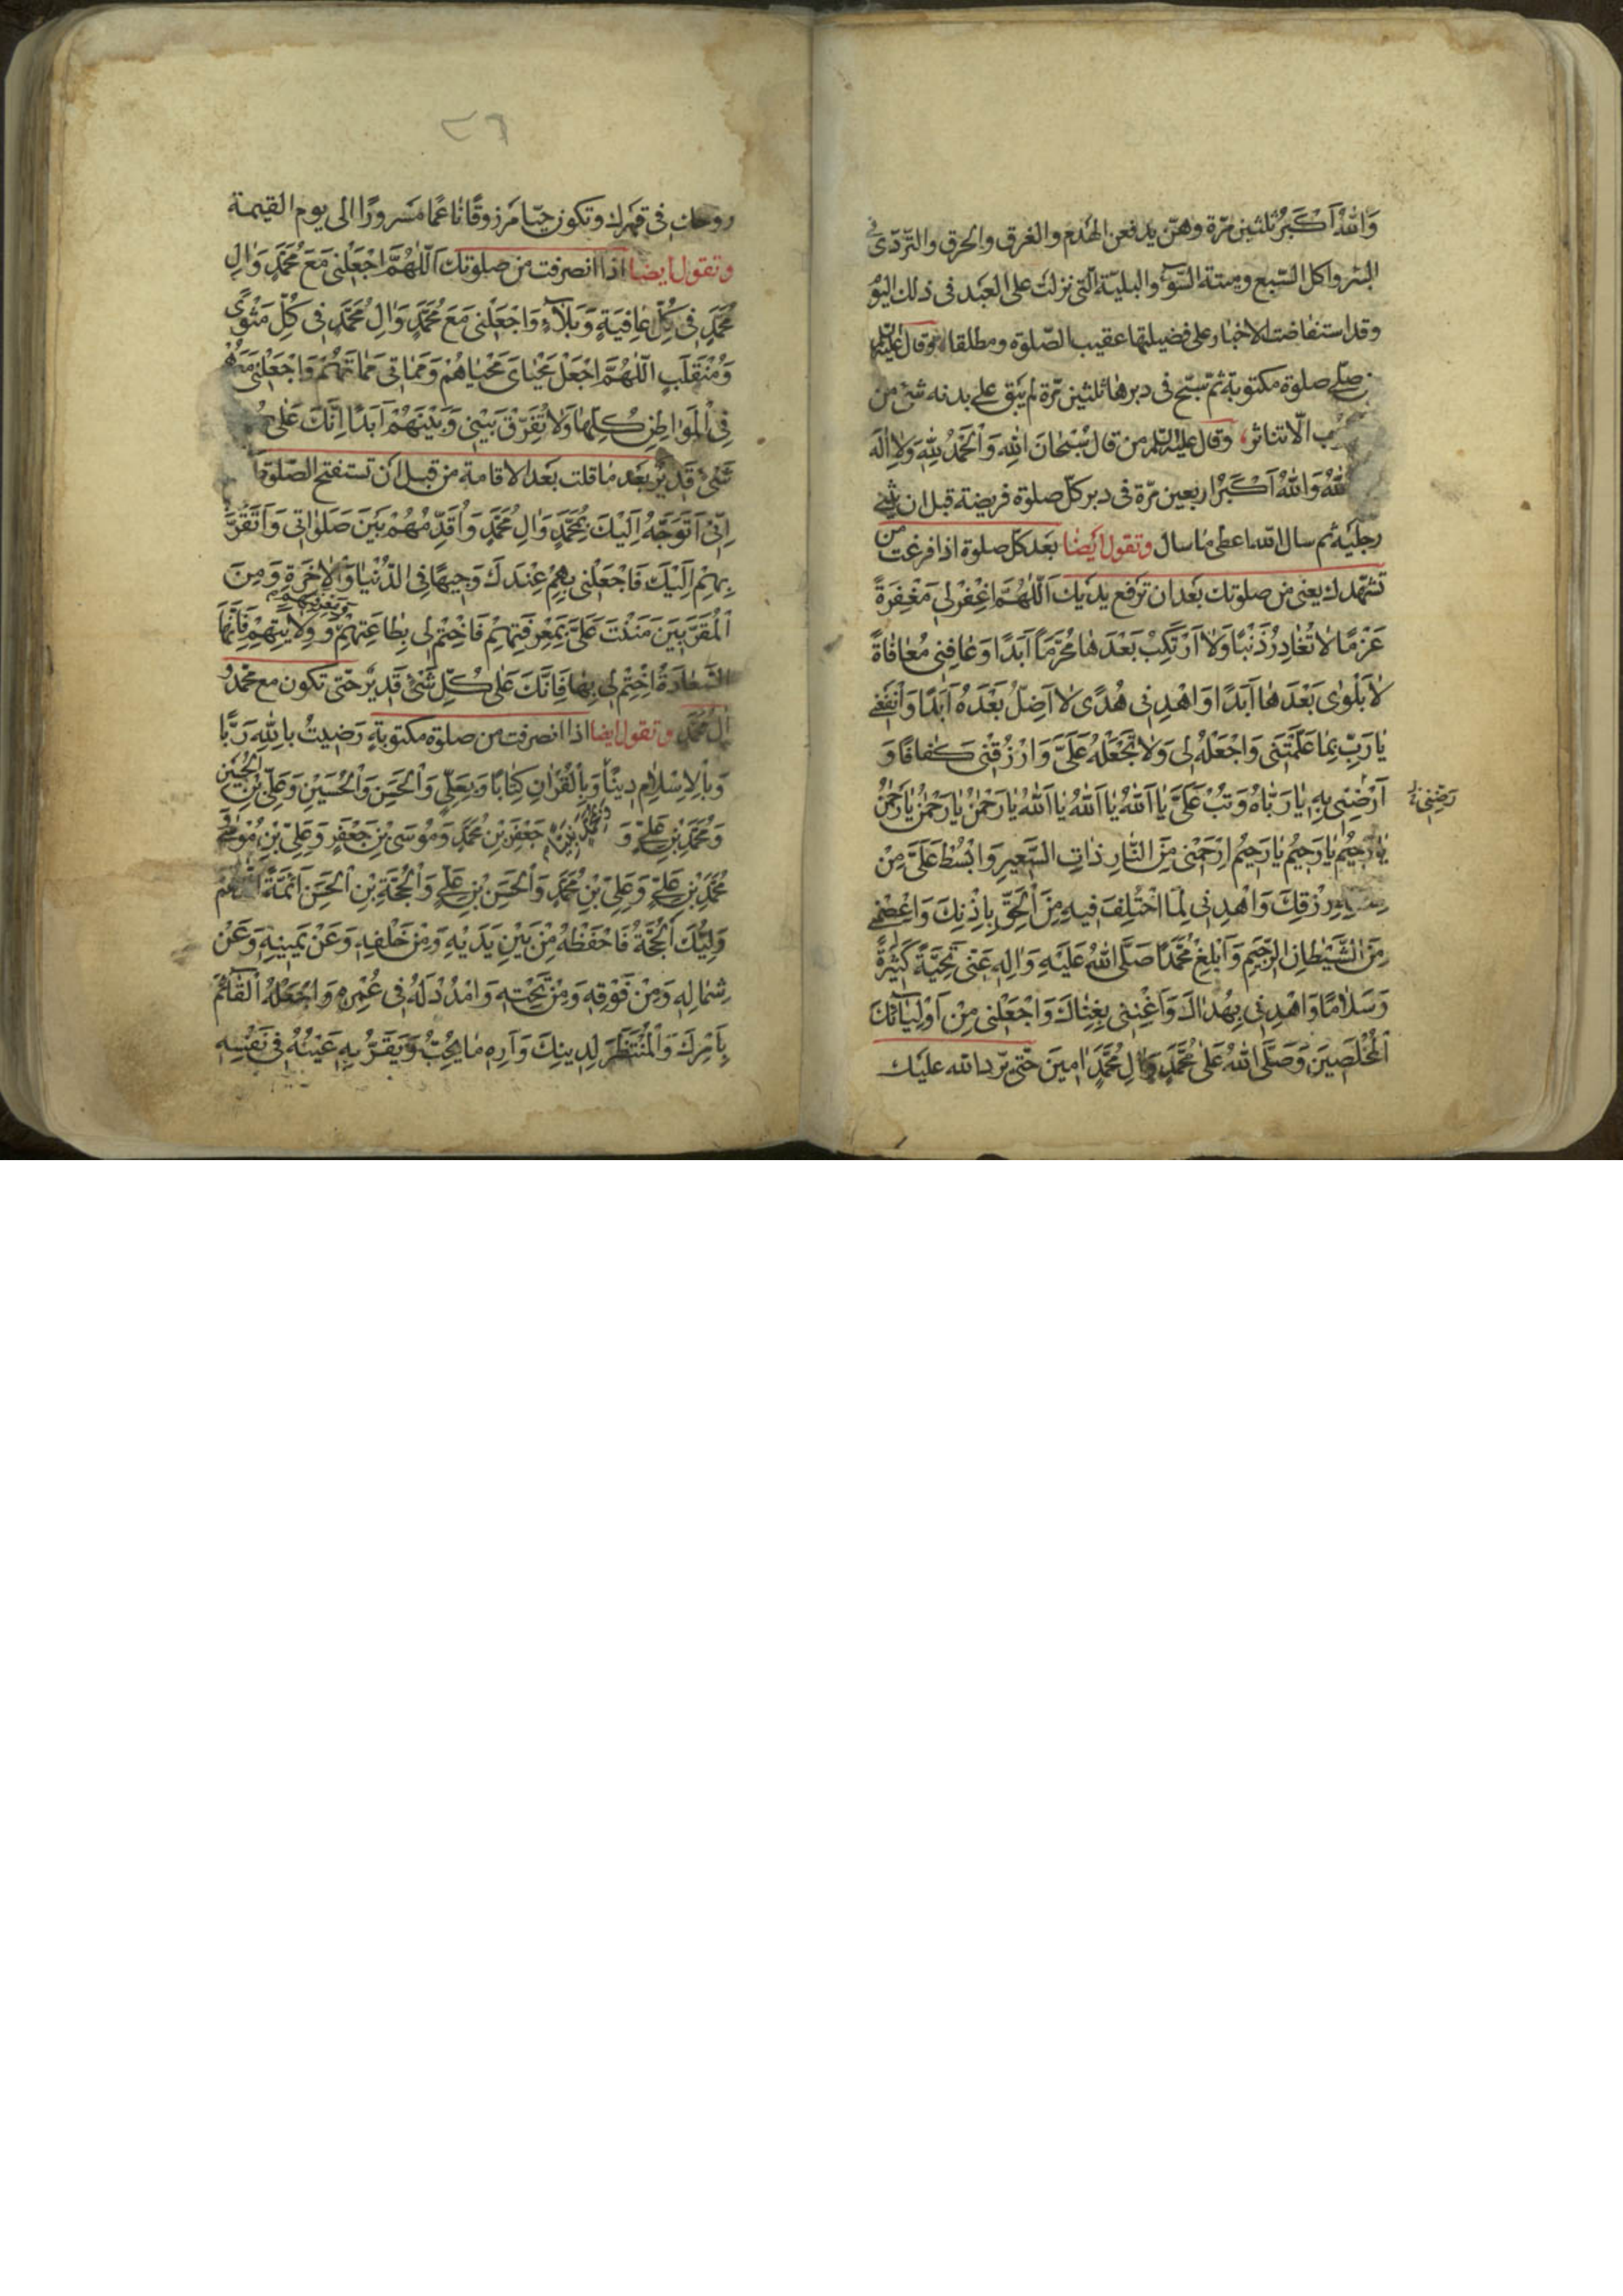 وَاللّٰهُ اَكْبَرُ ثلثين مرّة وهنّ يدفعن الهدم والغرق والحرق والتّردّى فى
البئر واكل السّبع وميتة السّوء والبليّة الّتى نزلت على العبد فى ذلك اليوم
وقد استفاضت الاخبار على فضيلتها عقيب الصّلوة ومطلقا وقال عليه
صلّى صلوة مكتوبة ثمّ سبّح فى دبرها ثلثين مرّة لم يبق على بدنه شئ من
الّا تناثر وقال عليه السّلم من قال سُبْحَانَ اللّٰهِ وَالْحَمْدُ لِلّٰهِ وَلَا اِلٰهَ
اللّٰهُ وَاللّٰهُ اَكْبَرُ اربعين مرّة فى دبر كلّ صلوة فريضة قبل ان يثنى
رجليه ثم سال الله اعطى ما سال وتقول ايضا بعد كلّ صلوة اذا فرغت من
تشهّدك يعنى من صلوتك بعد ان ترفع يديك اَللّٰهُمَّ اغْفِرْ لِى مَغْفِرَةً
عَزْمًا لَا تُغَادِرُ ذَنْبًا وَلَا اَرْتَكِبُ بَعْدَهَا مُحَرَّمًا اَبَدًا وَعَافِنِى مُعَافَاةً
لَا بَلْوٰى بَعْدَهَا اَبَدًا وَاهْدِنِى هُدًى لَا اَضِلُّ بَعْدَهُ اَبَدًا وَانْفَعْنِى
يَا رَبِّ بِمَا عَلَّمْتَنِى وَاجْعَلْهُ لِى وَلَا تَجْعَلْهُ عَلَىَّ وَارْزُقْنِى كَفَافًا وَ
اَرْضِنِى بِهِ يَا رَبَّاهُ وَتُبْ عَلَىَّ يَا اَللّٰهُ يَا اَللّٰهُ يَا اَللّٰهُ يَا رَحْمٰنُ يَا رَحْمٰنُ يَا رَحْمٰنُ
رَضِّنِى
يَا رَحِيمُ يَا رَحِيمُ يَا رَحِيمُ اِرْحَمْنِى مِنَ النَّارِ ذَاتِ السَّعِيرِ وَابْسُطْ عَلَىَّ مِنْ
رِزْقِكَ وَاهْدِنِى لِمَا اخْتُلِفَ فِيهِ مِنَ الْحَقِّ بِاِذْنِكَ وَاعْصِمْنِى
مِنَ الشَّيْطَانِ الرَّجِيمِ وَاَبْلِغْ مُحَمَّدًا صَلَّى اللّٰهُ عَلَيْهِ وَاٰلِهِ عَنِّى تَحِيَّةً كَثِيرَةً
وَسَلَامًا وَاهْدِنِى بِهُدَاكَ وَاَغْنِنِى بِغِنَاكَ وَاجْعَلْنِى مِنْ اَوْلِيَائِكَ
الْمُخْلَصِينَ وَصَلَّى اللّٰهُ عَلٰى مُحَمَّدٍ وَاٰلِ مُحَمَّدٍ اٰمِينَ حتّى يردّ الله عليك
روحك فى قبرك وتكون حيّا مرزوقًا ناعمًا مسرورًا الى يوم القيمة
وتقول ايضا اذا انصرفت من صلوتك اَللّٰهُمَّ اجْعَلْنِى مَعَ مُحَمَّدٍ وَاٰلِ
مُحَمَّدٍ فِى كُلِّ عَافِيَةٍ وَبَلَاءٍ وَاجْعَلْنِى مَعَ مُحَمَّدٍ وَاٰلِ مُحَمَّدٍ فِى كُلِّ مَثْوًى
وَمُنْقَلَبٍ اَللّٰهُمَّ اجْعَلْ مَحْيَاىَ مَحْيَاهُمْ وَمَمَاتِى مَمَاتَهُمْ وَاجْعَلْنِى مَعَهُمْ
فِى الْمَوَاطِنِ كُلِّهَا وَلَا تُفَرِّقْ بَيْنِى وَبَيْنَهُمْ اَبَدًا اِنَّكَ عَلٰى
شَىْءٍ قَدِيرٌ بعد ما قلت بعد الاقامة من قبل ان تستفتح الصّلوة
اِنِّى اَتَوَجَّهُ اِلَيْكَ بِمُحَمَّدٍ وَاٰلِ مُحَمَّدٍ وَاُقَدِّمُهُمْ بَيْنَ صَلَوَاتِى وَاَتَقَرَّبُ
بِهِمْ اِلَيْكَ فَاجْعَلْنِى بِهِمْ عِنْدَكَ وَجِيهًا فِى الدُّنْيَا وَالْاٰخِرَةِ وَمِنَ
الْمُقَرَّبِينَ مَنَنْتَ عَلَىَّ بِمَعْرِفَتِهِمْ فَاخْتِمْ لِى بِطَاعَتِهِمْ وَمَعْرِفَتِهِمْ وَوِلَايَتِهِمْ فَاِنَّهَا
السَّعَادَةُ اخْتِمْ لِى بِهَا فَاِنَّكَ عَلٰى كُلِّ شَىْءٍ قَدِيرٌ حتّى تكون مع محمّد و
اٰل محمّد وتقول ايضا اذا انصرفت من صلوة مكتوبةٍ رَضِيتُ بِاللّٰهِ رَبًّا
وَبِالْاِسْلَامِ دِينًا وَبِالْقُرْاٰنِ كِتَابًا وَبِعَلِىٍّ وَالْحَسَنِ وَالْحُسَيْنِ وَعَلِىِّ بْنِ الْحُسَيْنِ
وَمُحَمَّدِ بْنِ عَلِىٍّ وَ جَعْفَرِ بْنِ مُحَمَّدٍ وَمُوسَى بْنِ جَعْفَرٍ وَعَلِىِّ بْنِ مُوسٰى وَ
مُحَمَّدِ بْنِ عَلِىٍّ وَعَلِىِّ بْنِ مُحَمَّدٍ وَالْحَسَنِ بْنِ عَلِىٍّ وَالْحُجَّةِ بْنِ الْحَسَنِ اَئِمَّةً اَللّٰهُمَّ
وَلِيُّكَ الْحُجَّةُ فَاحْفَظْهُ مِنْ بَيْنِ يَدَيْهِ وَمِنْ خَلْفِهِ وَعَنْ يَمِينِهِ وَعَنْ
شِمَالِهِ وَمِنْ فَوْقِهِ وَمِنْ تَحْتِهِ وَامْدُدْ لَهُ فِى عُمْرِهِ وَاجْعَلْهُ الْقَائِمَ
بِاَمْرِكَ وَالْمُنْتَظَرَ لِدِينِكَ وَاَرِهِ مَا يُحِبُّ وَيَقَرُّ بِهِ عَيْنُهُ فِى نَفْسِهِ